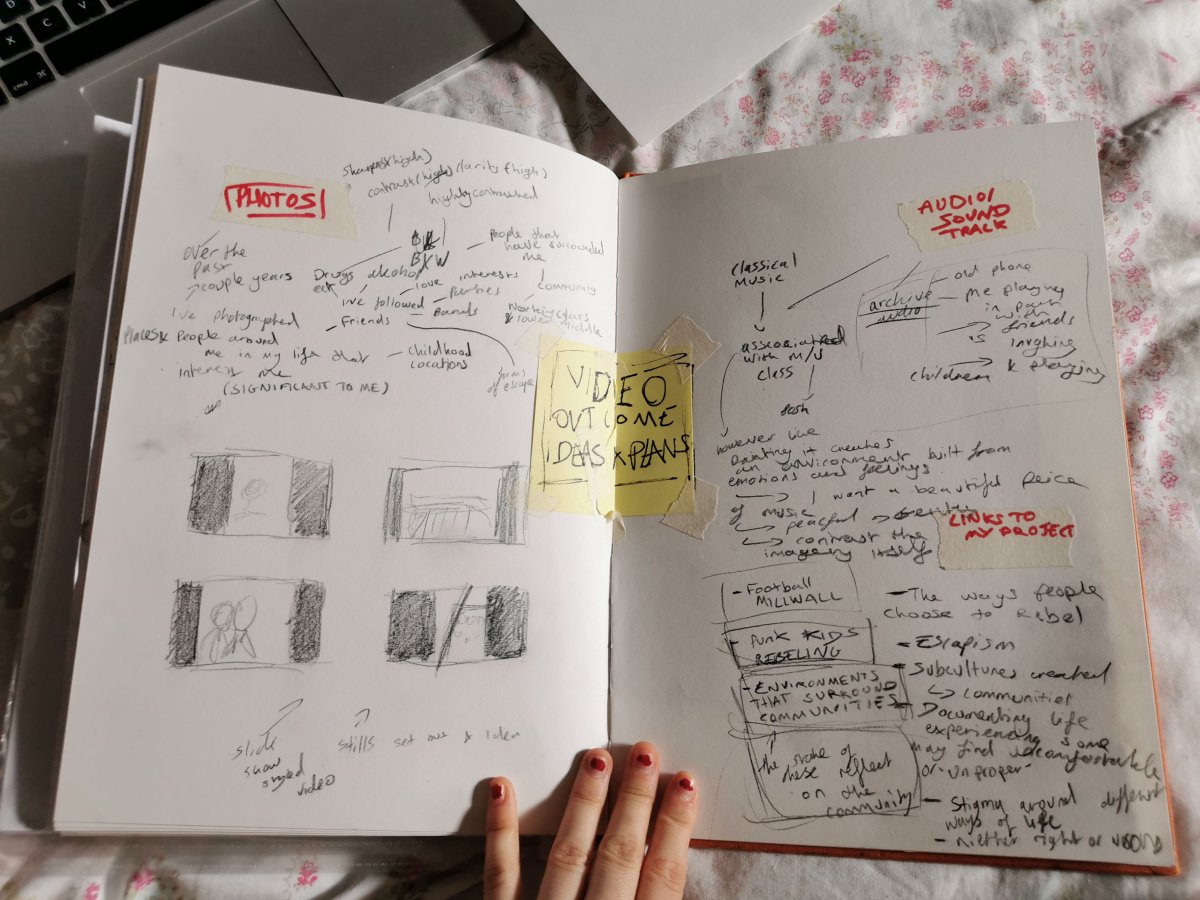 PHOTOS
sharpness (high)
contrast (high) clarity (high)
highly contrasted
B&W
over the
past
couple years
I've photographed
Places & People around
me in my life that
interest me
(SIGNIFICANT TO ME)
Drugs alcohol
ect
I've followed
Friends
love
interests
Parties
Bands
People that
have surrounded
me
community
working class
& lower middle
childhood
locations
forms
of escape
slide
show
styled
video
stills set out & Idea
VIDEO
OUTCOME
IDEAS & PLANS
AUDIO/
SOUND
TRACK
classical
MUSIC
asscociated
with M/U
class
posh
archive
audio
old phone
me playing
in park
with
friends
laughing
children & playing
however like
painting it creates
an environment built from
emotions and feelings
I want a beautiful Peice
of music
peacful
contrast the
imagery itself
LINKS TO
MY PROJECT
- Football
MILLWALL
- PUNK KIDS
REBELING
- ENVIRONMENTS
THAT SURROUND
COMMUNITIES
the state of
these reflect
on the
community
- The ways people
choose to Rebel
- Escapism
- Subcultures created
communities
- Documenting life
experiencing some
may find uncomfortable
or unproper
- Stigma around different
ways of life
- niether right or wrong